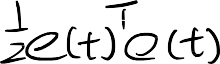 \frac{1}{2}e(t)^T e(t)